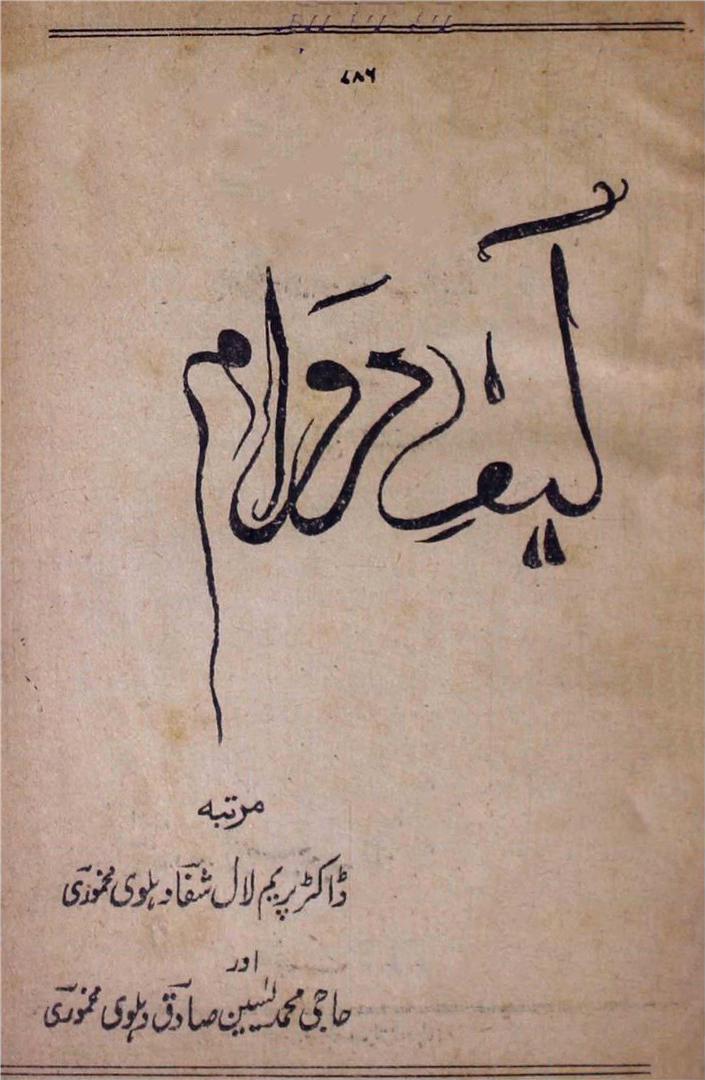 ۷۸۶
کیفِ دوام
مرتبہ
ڈاکٹر پریم لال شفا دہلوی مخموری
اور
حاجی محمد یٰسین صادق دہلوی مخموری